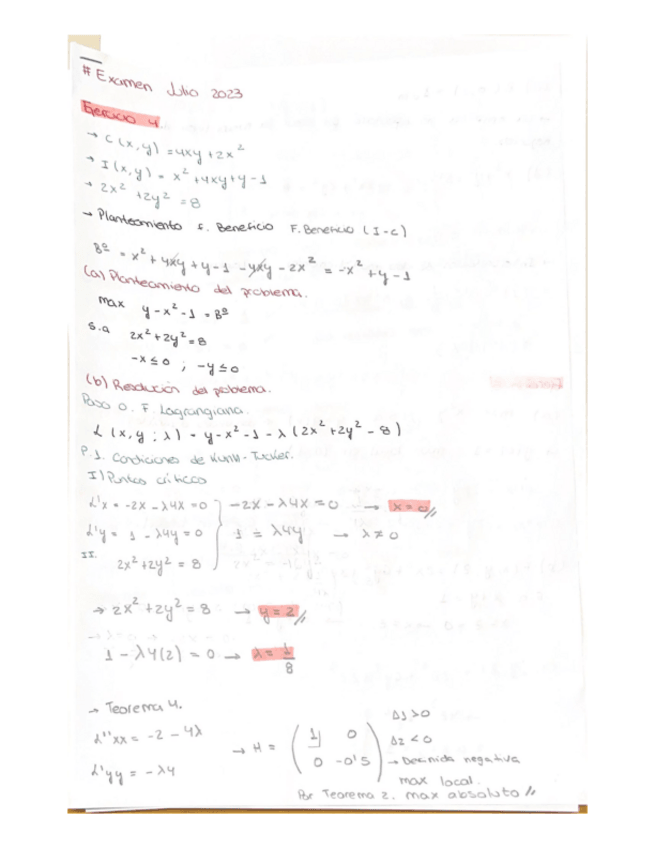 # Examen Julio 2023
Ejercicio 4
→ C(x,y) = 4xy + 2x²
→ I(x,y) = x² + 4xy + y - 1
→ 2x² + 2y² = 8
→ Planteamiento F. Beneficio F. Beneficio (I-C)
Bº = x² + 4xy + y - 1 - 4xy - 2x² = -x² + y - 1
(a) Planteamiento del problema.
max y - x² - 1 = Bº
s.a 2x² + 2y² = 8
-x ≤ 0 ; -y ≤ 0
(b) Resolución del problema.
Paso 0. F. Lagrangiana.
L (x,y ; λ) = y - x² - 1 - λ (2x² + 2y² - 8)
P.1. Condiciones de Kuhn-Tucker.
I) Puntos críticos
L'x = -2x - λ4x = 0 } -2x - λ4x = 0 → x = 0 //
L'y = 1 - λ4y = 0 } 1 = λ4y → λ ≠ 0
II. 2x² + 2y² = 8
→ 2x² + 2y² = 8 → y = 2 //
1 - λ4(2) = 0 → λ = 1/8
→ Teorema 4.
L''xx = -2 - 4λ
L'yy = -λ4
→ H = ( 1 0
0 -0'5 )
Δ1 > 0
Δ2 < 0
→ Definida negativa
max local.
Por Teorema 2. max absoluto //